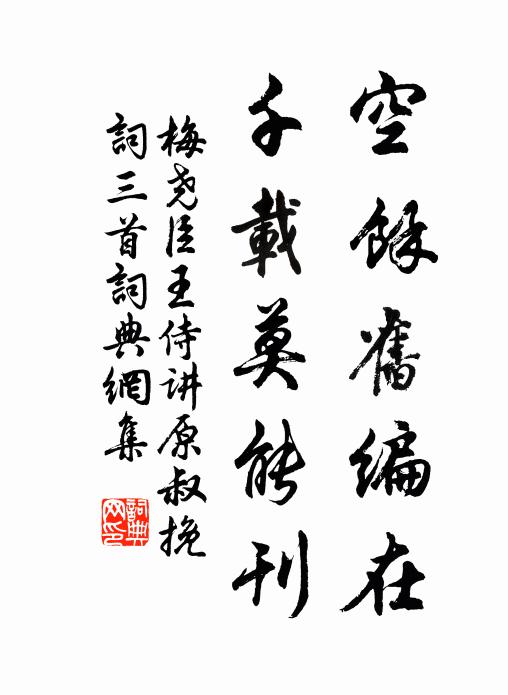 空餘舊編在
千載莫能刊
梅堯臣王侍讲原叔挽
詞三首詞典網集
詞典
网印